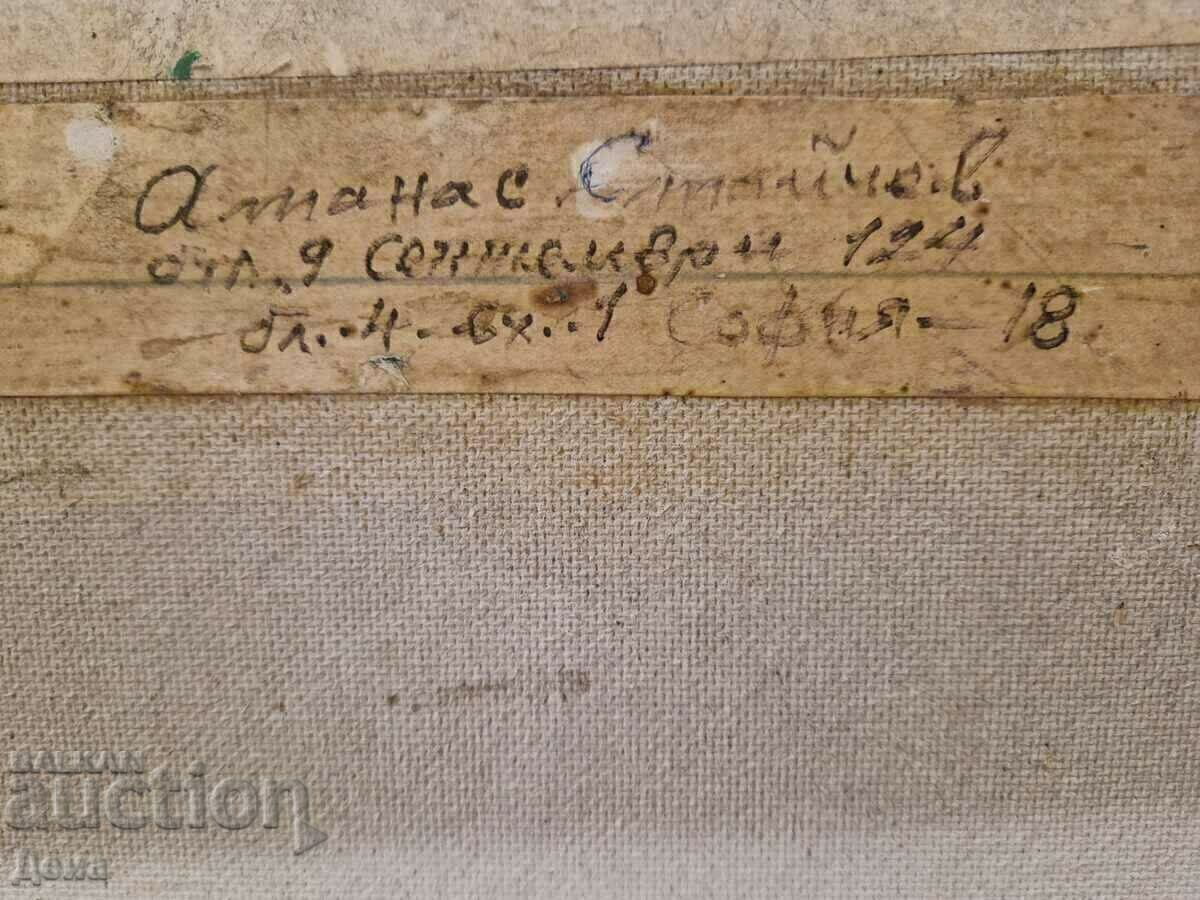 Атанас Стайчов
бул. 9 Септември 124
бл. 4 вх. 1 София - 18.
BALKAN
auction
Дена